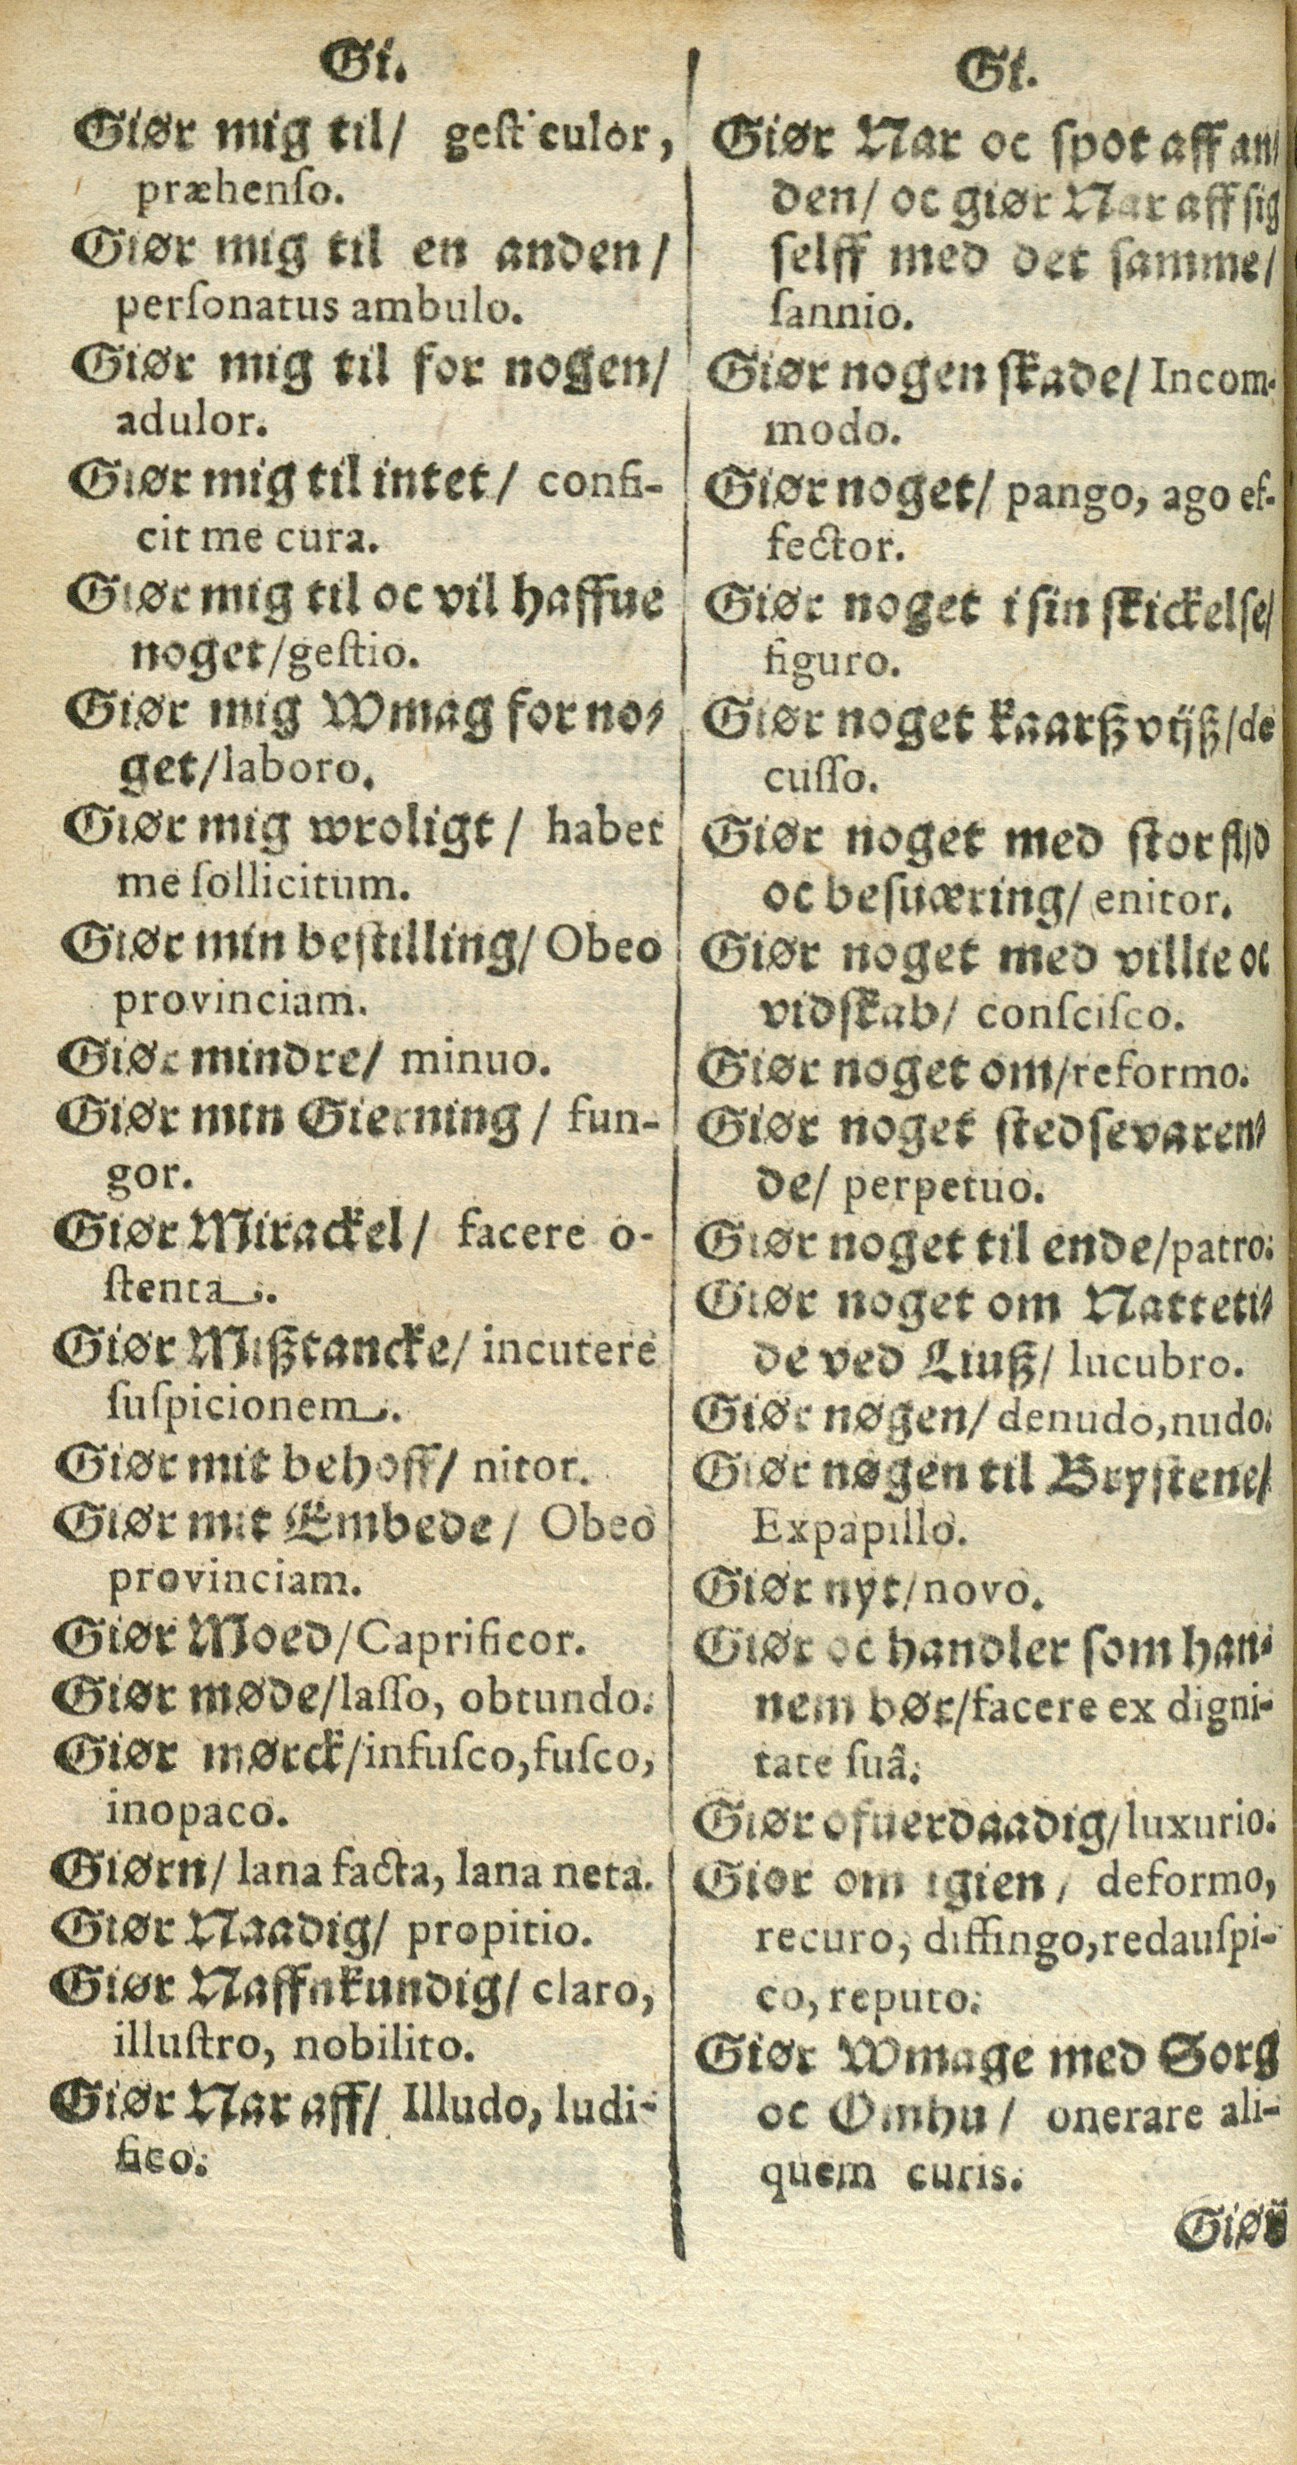 Gi.
Giør mig til/ gesticulor,
præhenſo.
Giør mig til en anden/
perſonatus ambulo.
Giør mig til for nogen/
adulor.
Giør mig til intet/ confi-
cit me cura.
Giør mig til oc vil haffue
noget/geſtio.
Giør mig Wmag for no-
get/laboro.
Giør mig wroligt/ habet
me ſollicitum.
Giør min beſtilling/ Obeo
provinciam.
Giør mindre/ minuo.
Giør min Gierning/ fun-
gor.
Giør Mirackel/ facere o-
ſtenta.
Giør Mißtancke/ incutere
ſuſpicionem.
Giør mit behoff/ nitor.
Giør mit Embede/ Obeo
provinciam.
Giør Moed/Caprificor.
Giør møde/laſſo, obtundo.
Giør mørck/infuſco,fuſco,
inopaco.
Giørn/ lana facta, lana neta.
Giør Naadig/ propitio.
Giør Naffnkundig/ claro,
illuſtro, nobilito.
Giør Nar aff/ Illudo, ludi-
fico.
Gi.
Giør Nar oc ſpot aff an-
den/ oc giør Nar aff ſig
ſelff med det ſamme/
ſannio.
Giør nogen ſkade/ Incom-
modo.
Giør noget/ pango, ago ef-
fector.
Giør noget i ſin ſkickelſe/
figuro.
Giør noget kaarßvijß/de
cuſſo.
Giør noget med ſtor flijd
oc beſuæring/ enitor.
Giør noget med villie oc
vidſkab/ conſciſco.
Giør noget om/reformo.
Giør noget ſtedſevaren-
de/ perpetuo.
Giør noget til ende/patro.
Giør noget om Natteti-
de ved Liuß/ lucubro.
Giør nøgen/ denudo,nudo.
Giør nøgen til Bryſtene/
Expapillo.
Giør nyt/novo.
Giør oc handler ſom han-
nem bør/facere ex digni-
tate ſuâ.
Giør ofuerdaadig/luxurio.
Giør om igien/ deformo,
recuro, diffingo,redauſpi-
co, reputo.
Giør Wmage med Sorg
oc Omhu/ onerare ali-
quem curis.
Giør